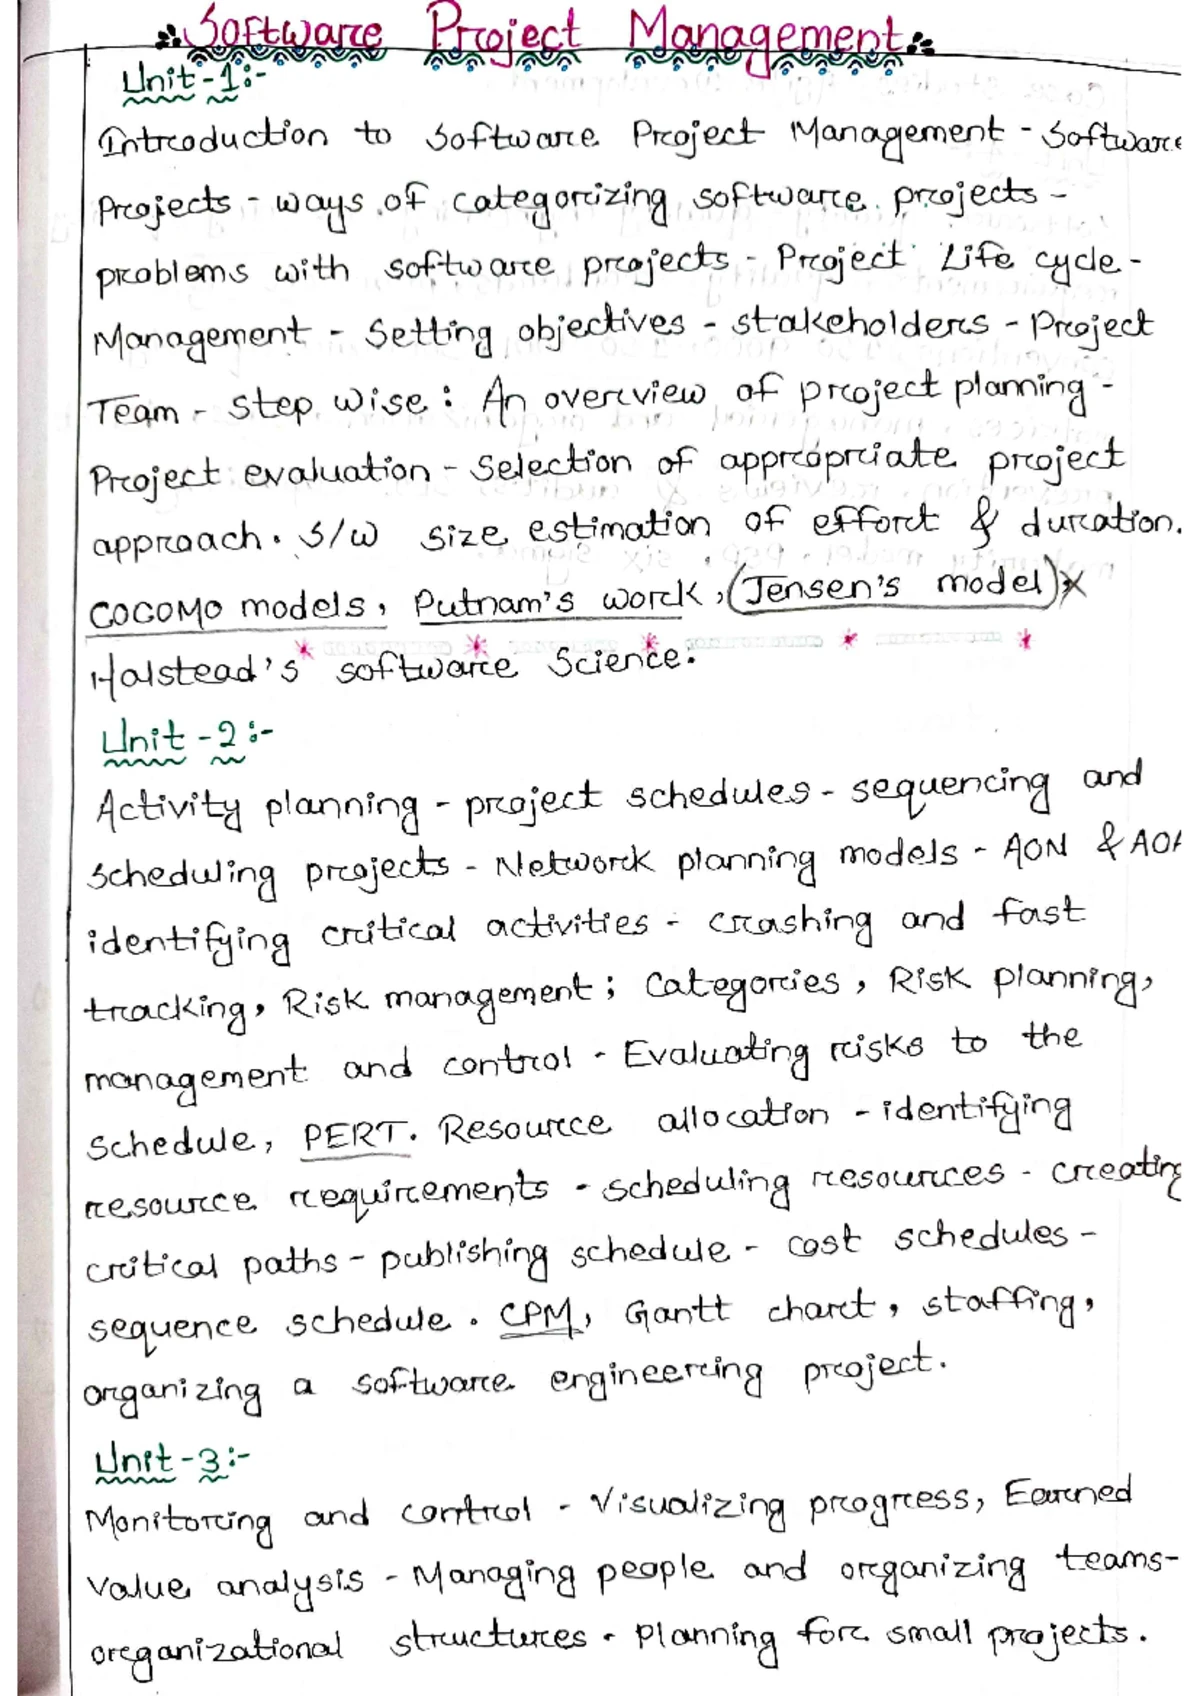 Software Project Management
Unit-1:-
Introduction to Software Project Management - Software
Projects - ways of categorizing software projects -
problems with software projects - Project Life cycle -
Management - Setting objectives - stakeholders - Project
Team - step wise : An overview of project planning -
Project evaluation - Selection of appropriate project
approach. S/W size estimation of effort & duration.
COCOMO models, Putnam's work, (Jensen's model)x
Halstead's software Science.
Unit-2:-
Activity planning - project schedules - sequencing and
scheduling projects - Network planning models - AON & AOA
identifying critical activities - crashing and fast
tracking, Risk management; Categories, Risk planning,
management and control - Evaluating risks to the
schedule, PERT. Resource allocation - identifying
resource requirements - scheduling resources - creating
critical paths - publishing schedule - cost schedules -
sequence schedule. CPM, Gantt chart, staffing,
organizing a software engineering project.
Unit-3:-
Monitoring and control - Visualizing progress, Earned
value analysis - Managing people and organizing teams-
organizational structures. Planning for small projects.